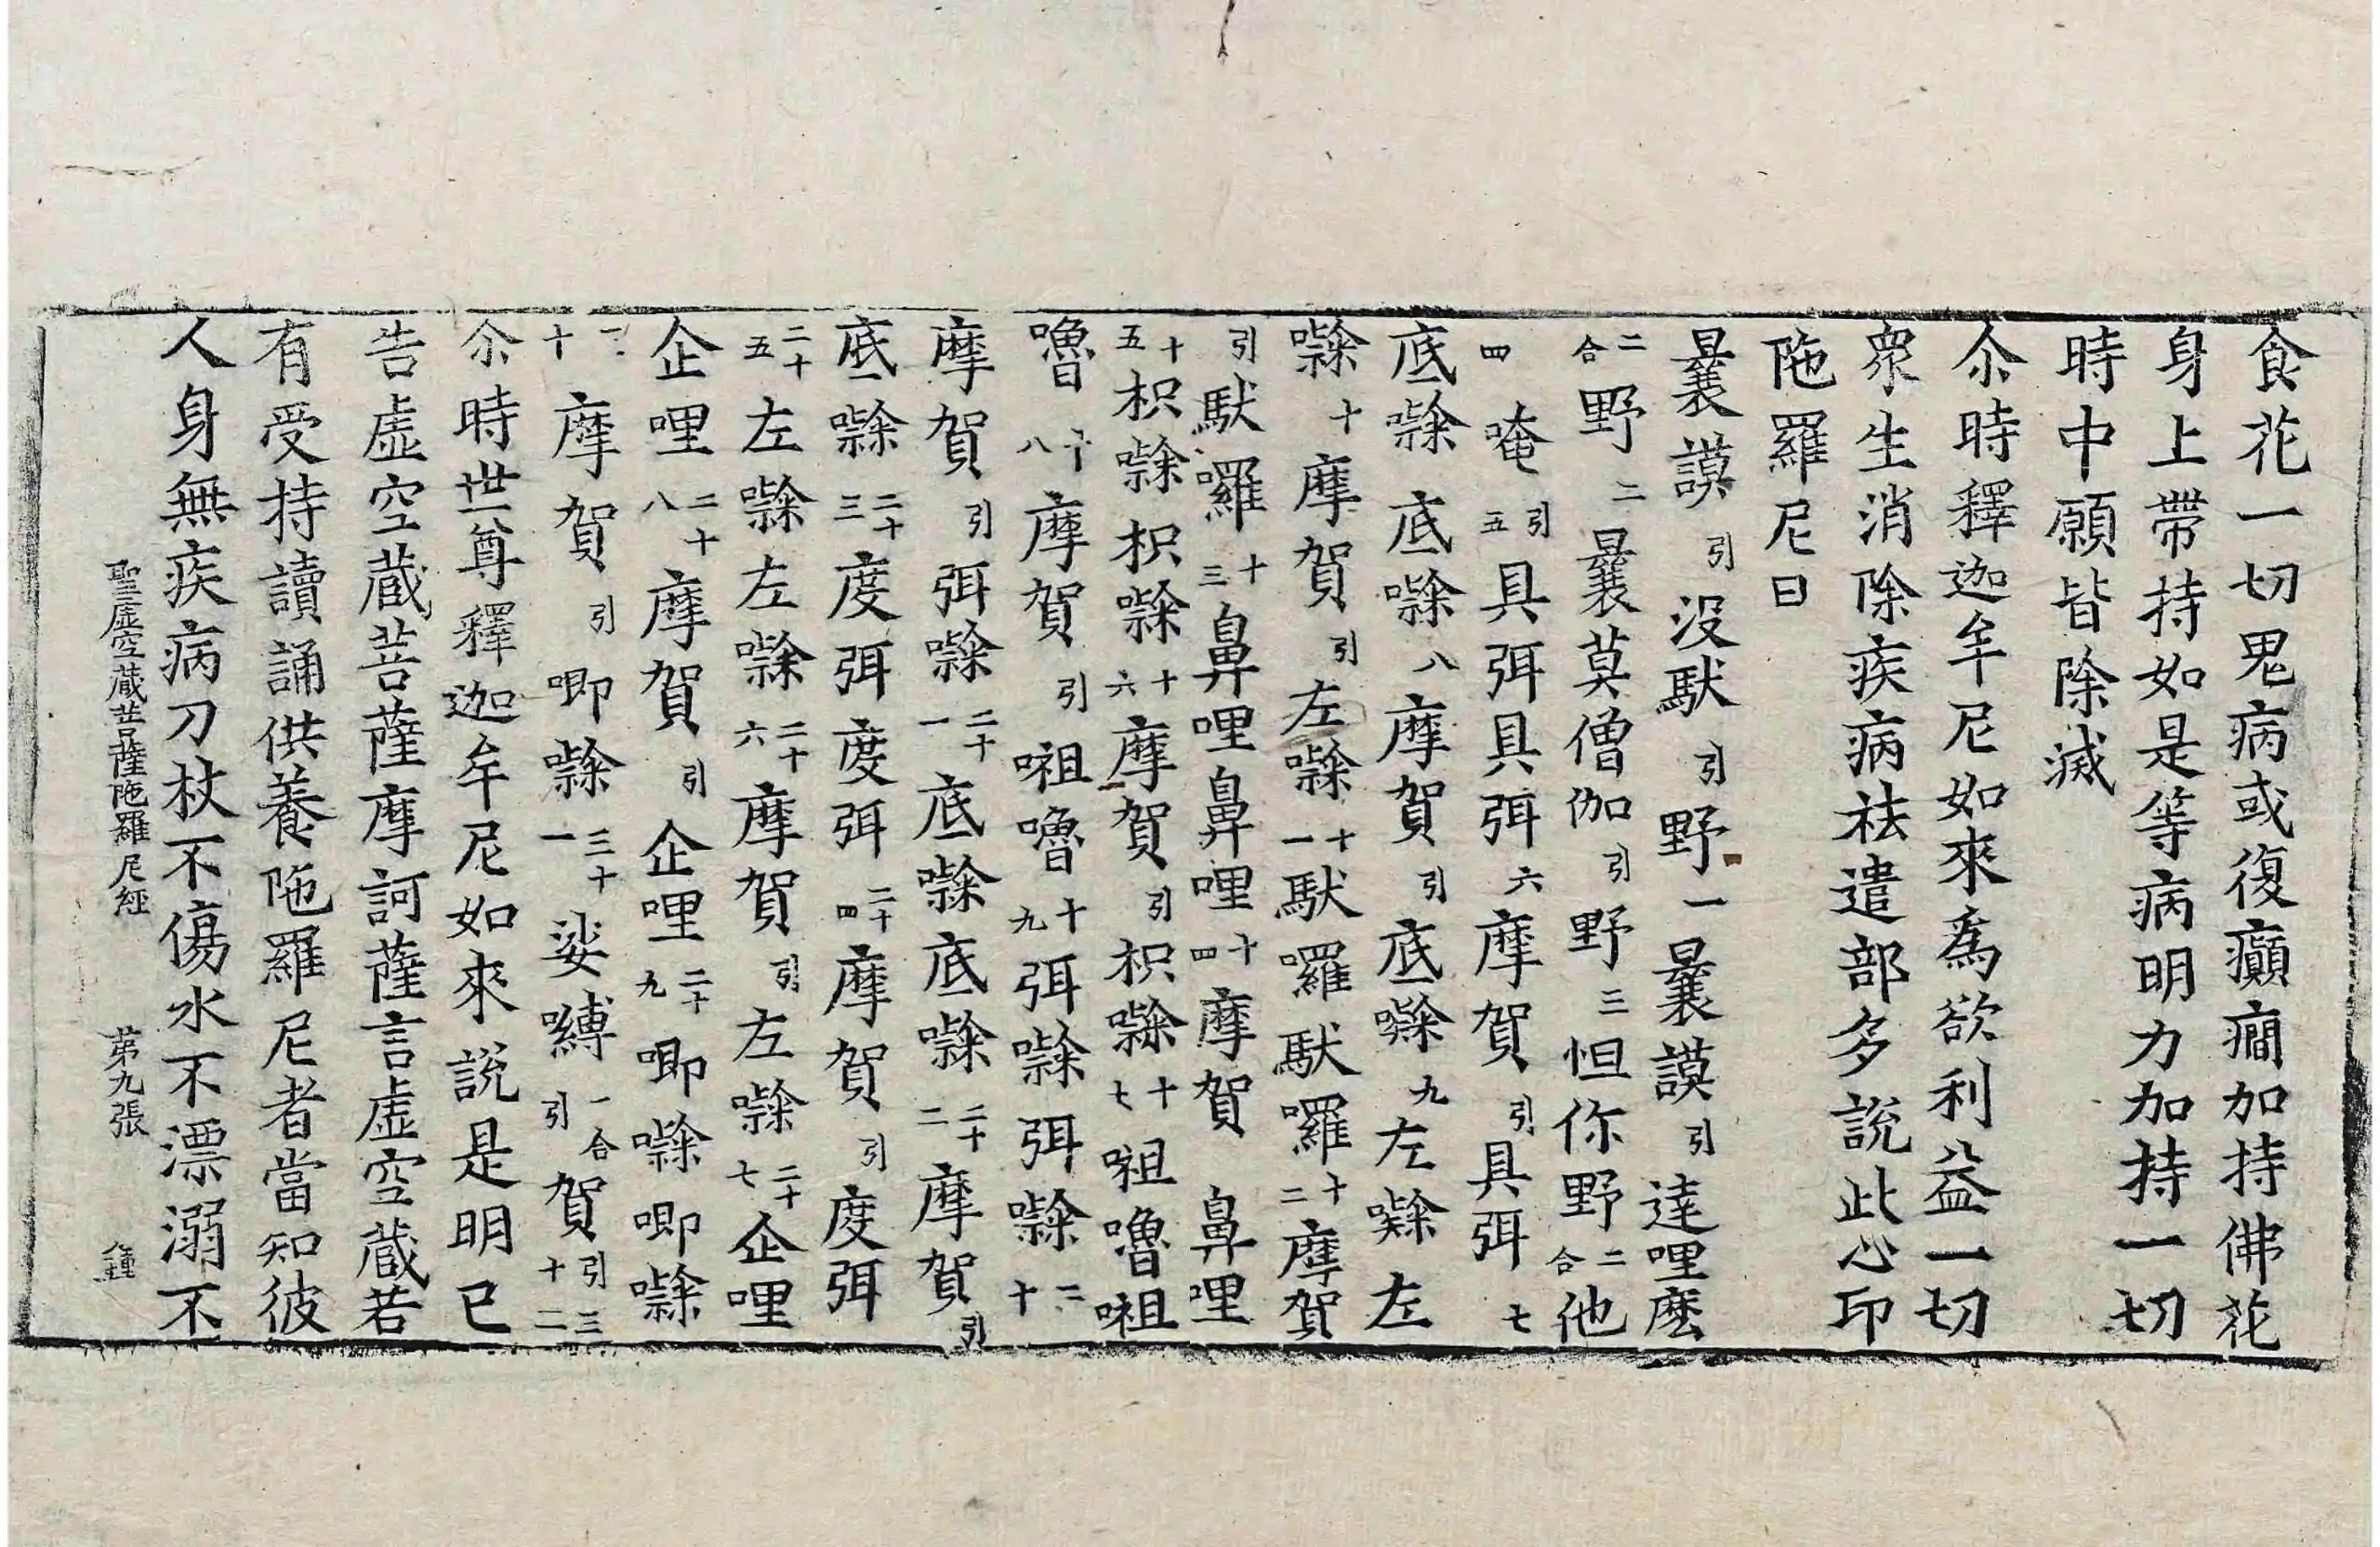 食花一切鬼病或復癲癎加持佛花
身上帶持如是等病明力加持一切
時中願皆除滅
尒時釋迦牟尼如來為欲利益一切
衆生消除疾病祛遣部多說此心印
陁羅尼曰
曩謨引没馱引野一曩謨引達哩麽
二合野二曩莫僧伽引野三怛你野二合他
四唵引五具弭具弭六摩賀引具弭七
底㘑底㘑八摩賀引底㘑九左㘑左
㘑十摩賀引左㘑十一馱囉馱囉十二摩賀
引馱囉十三鼻哩鼻哩十四摩賀鼻哩
十五枳㘑枳㘑十六摩賀引枳㘑十七㗱嚕㗱
嚕十八摩賀引㗱嚕十九弭㘑弭㘑二十
摩賀引弭㘑二十一底㘑底㘑二十二摩賀引
底㘑二十三度弭度弭二十四摩賀引度弭
二十五左㘑左㘑二十六摩賀引左㘑二十七企哩
企哩二十八摩賀引企哩二十九唧㘑唧㘑
三十摩賀引唧㘑三十一娑嚩二合引賀引三十二
尒時世尊釋迦牟尼如來說是明已
告虛空藏菩薩摩訶薩言虛空藏若
有受持讀誦供養陁羅尼者當知彼
人身無疾病刀杖不傷水不漂溺不
聖虛空藏菩薩陁羅尼經 第九張 鍾